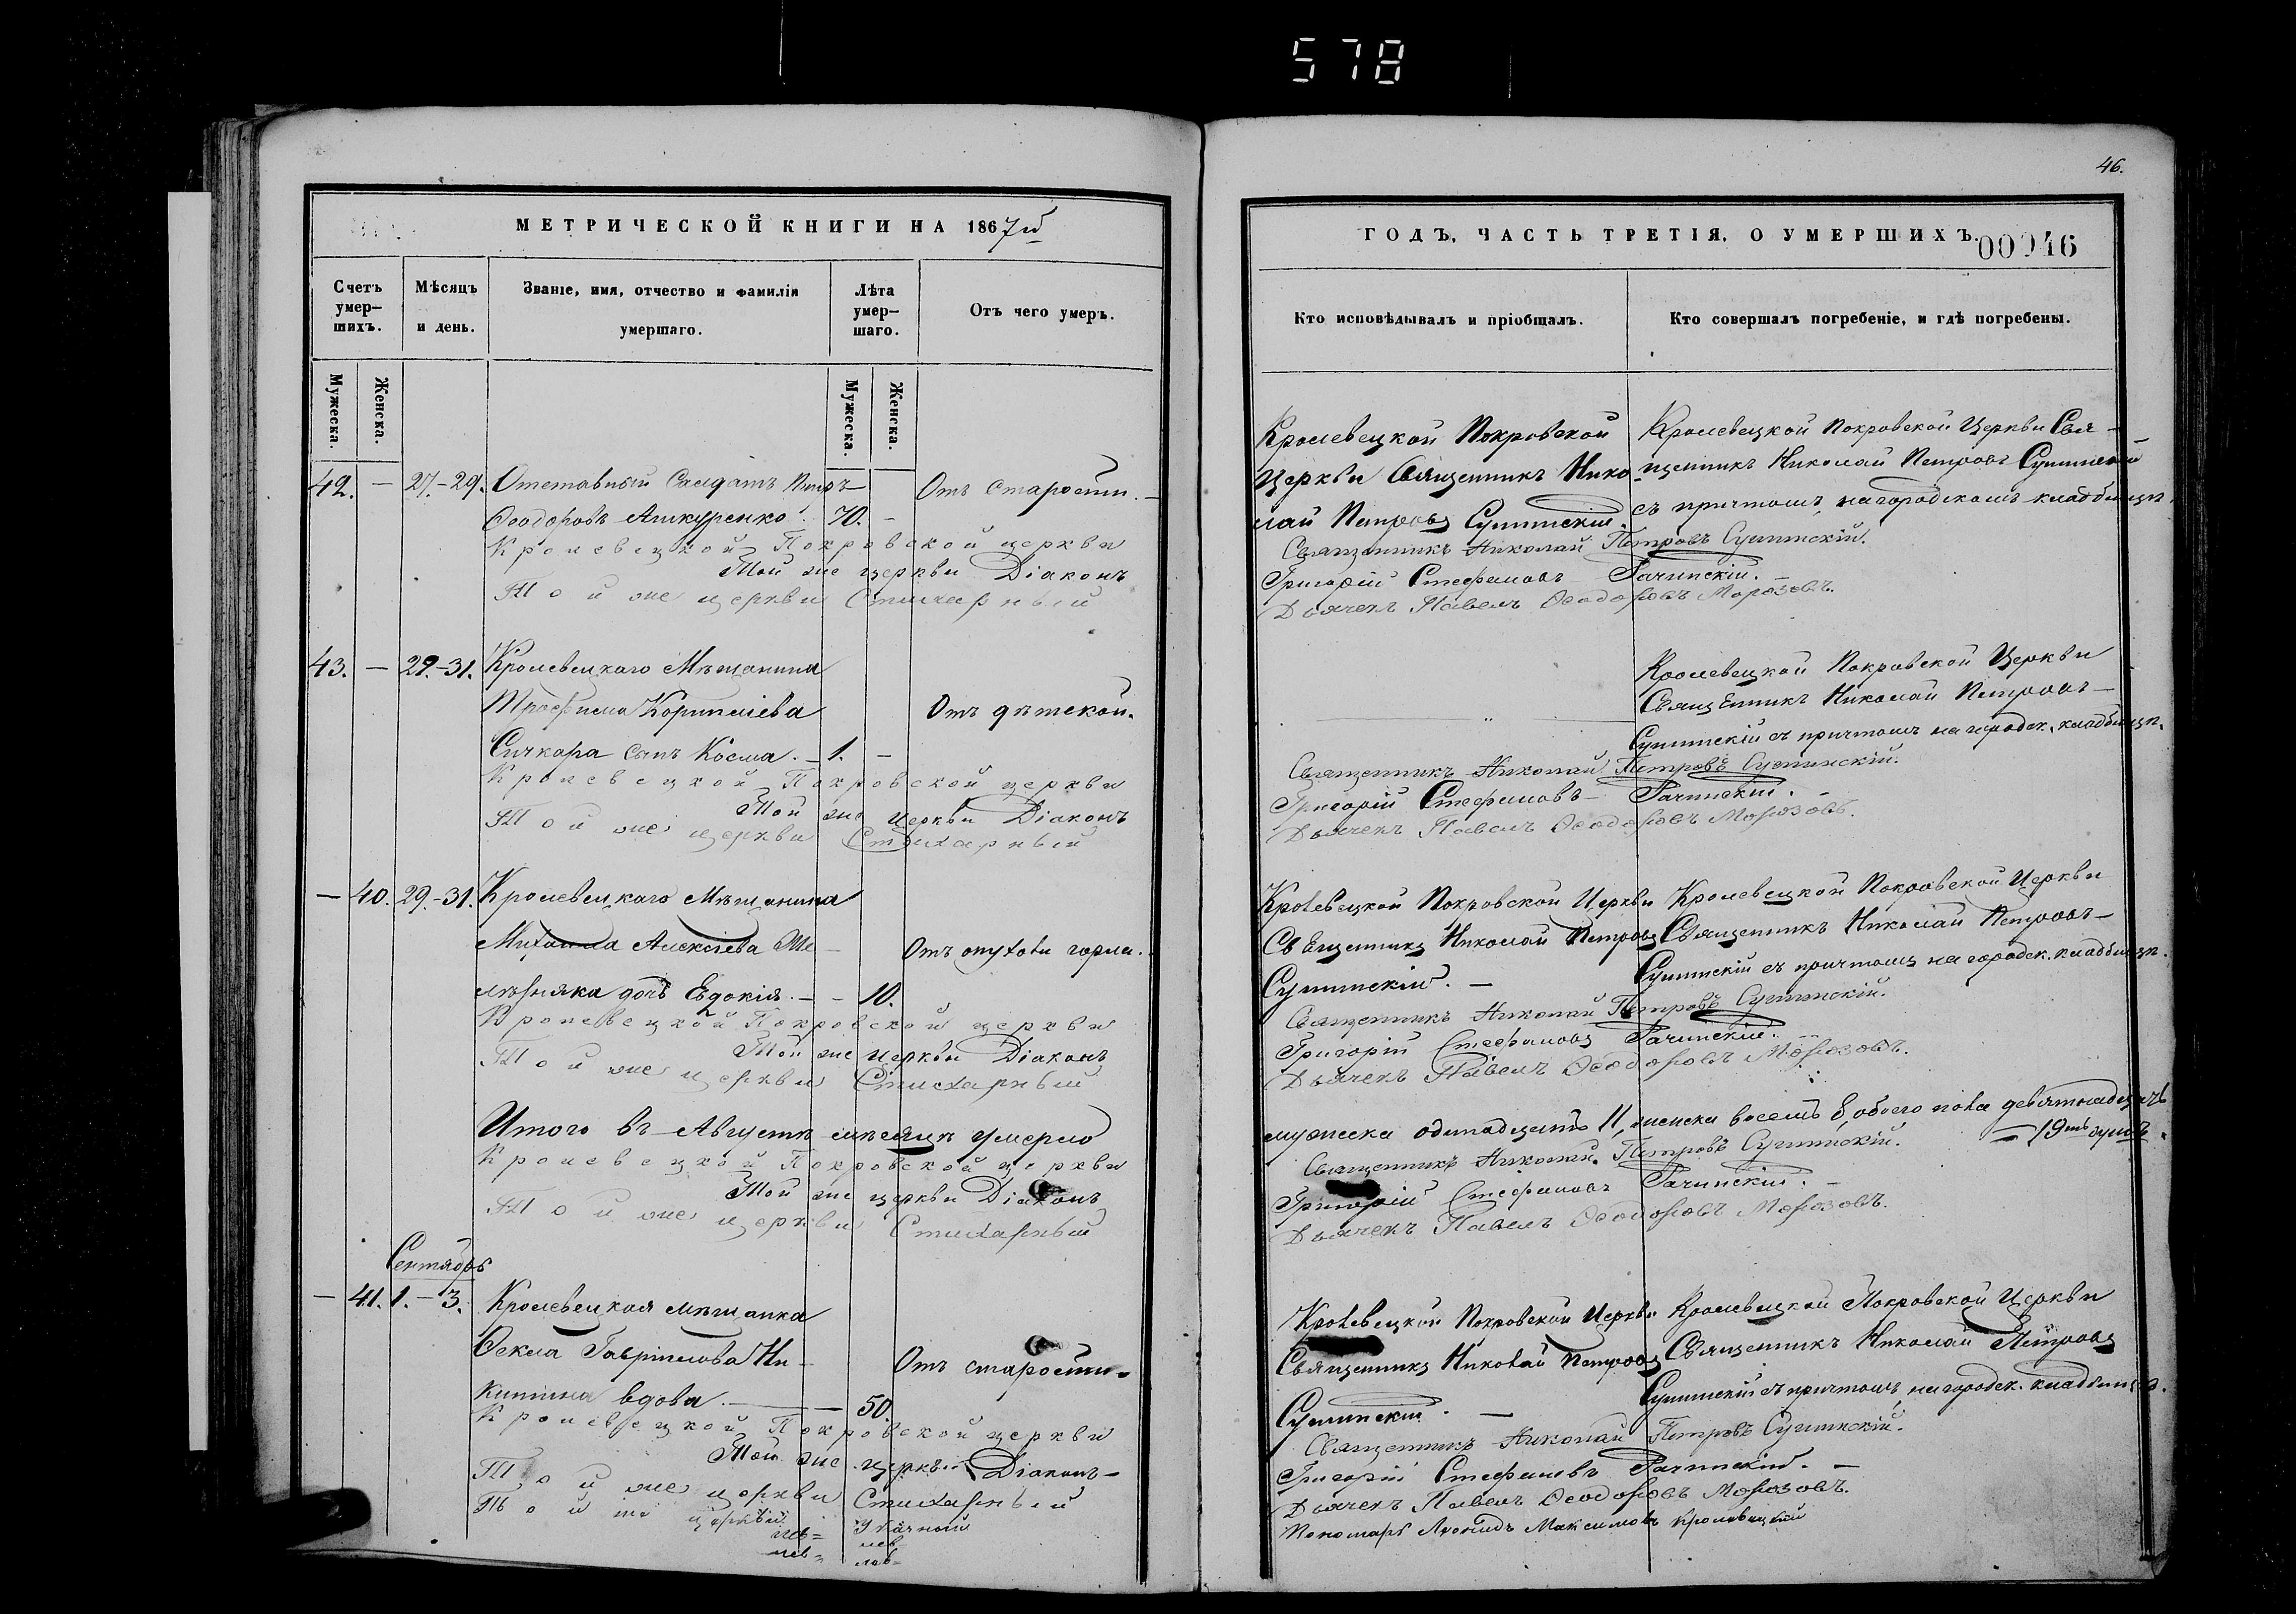 578
46.
МЕТРИЧЕСКОЙ КНИГИ НА 1867й
Счетъ умер-шихъ.
Мѣсяцъ и день.
Званіе, имя, отчество и фамилія умершаго.
Лѣта умер-шаго.
Отъ чего умеръ.
Мужеска.
Женска.
Мужеска.
Женска.
42. — 27.-29. Отставный Салдатъ Петръ — Отъ старости. —
Ѳеодоровъ 70. —
Кролевецкой Покровской церкви
Той же церкви Діаконъ
Той же церкви Стихарный
43. — 29.-31. Кролевецкаго Мѣщанина
Трофима Корнилiева Отъ дѣтской.
Сичкаря сынъ Косма. — 1. —
Кролевецкой Покровской церкви
Той же церкви Діаконъ
Той же церкви Стихарный
— 40. 29.-31. Кролевецкаго Мѣщанина
Михаила Алексіева Ме- Отъ опухоли горла.
лѣшняка дочь Евдокія. — — 10.
Кролевецкой Покровской церкви
Той же церкви Діаконъ
Той же церкви Стихарный
Итого въ Августѣ мѣсяцѣ умерло
Кролевецкой Покровской церкви
Той же церкви Діаконъ
Той же церкви Стихарный
Сентябрь
— 41. 1. — 3. Кролевецкая мѣщанка
Ѳекла Гавріилова Ни- Отъ старости.
китина вдова. — — 50.
Кролевецкой Покровской церкви
Той же церкви Діаконъ —
Той же церкви Стихарный
Той же церкви
ГОДЪ, ЧАСТЬ ТРЕТІЯ, О УМЕРШИХЪ.
00046
Кто исповѣдывалъ и пріобщалъ.
Кто совершалъ погребеніе, и гдѣ погребены.
Кролевецкой Покровской Кролевецкой Покровской Церкви Свя-
Церкви Священникъ Нико- щенникъ Николай Петровъ
лай Петровъ съ причтомъ, на городскомъ кладбищѣ.
Священникъ Николай Петровъ
Григорій Стефановъ
Дьячекъ Павелъ Ѳеодоровъ Морозовъ.
Кролевецкой Покровской Церкви
Священникъ Николай Петровъ —
съ причтомъ на городск. кладбищѣ.
Священникъ Николай Петровъ
Григорій Стефановъ —
Дьячекъ Павелъ Ѳеодоровъ Морозовъ.
Кролевецкой Покровской Церкви Кролевецкой Покровской Церкви
Священникъ Николай Петровъ Священникъ Николай Петровъ —
съ причтомъ на городск. кладбищѣ.
Священникъ Николай Петровъ
Григорій Стефановъ
Дьячекъ Павелъ Ѳеодоровъ Морозовъ.
мужеска одинадцать 11, женска восемь 8, обоего пола девятнадцать
— 19ть душъ.
Священникъ Николай Петровъ
Григорій Стефановъ
Дьячекъ Павелъ Ѳеодоровъ Морозовъ.
Кролевецкой Покровской Церкви Кролевецкой Покровской Церкви
Священникъ Николай Петровъ Священникъ Николай Петровъ
съ причтомъ, на городск. кладбищѣ.
Священникъ Николай Петровъ
Григорій Стефановъ
Дьячекъ Павелъ Ѳеодоровъ Морозовъ.
Пономарь Леонидъ Максимовъ Кролевецкій